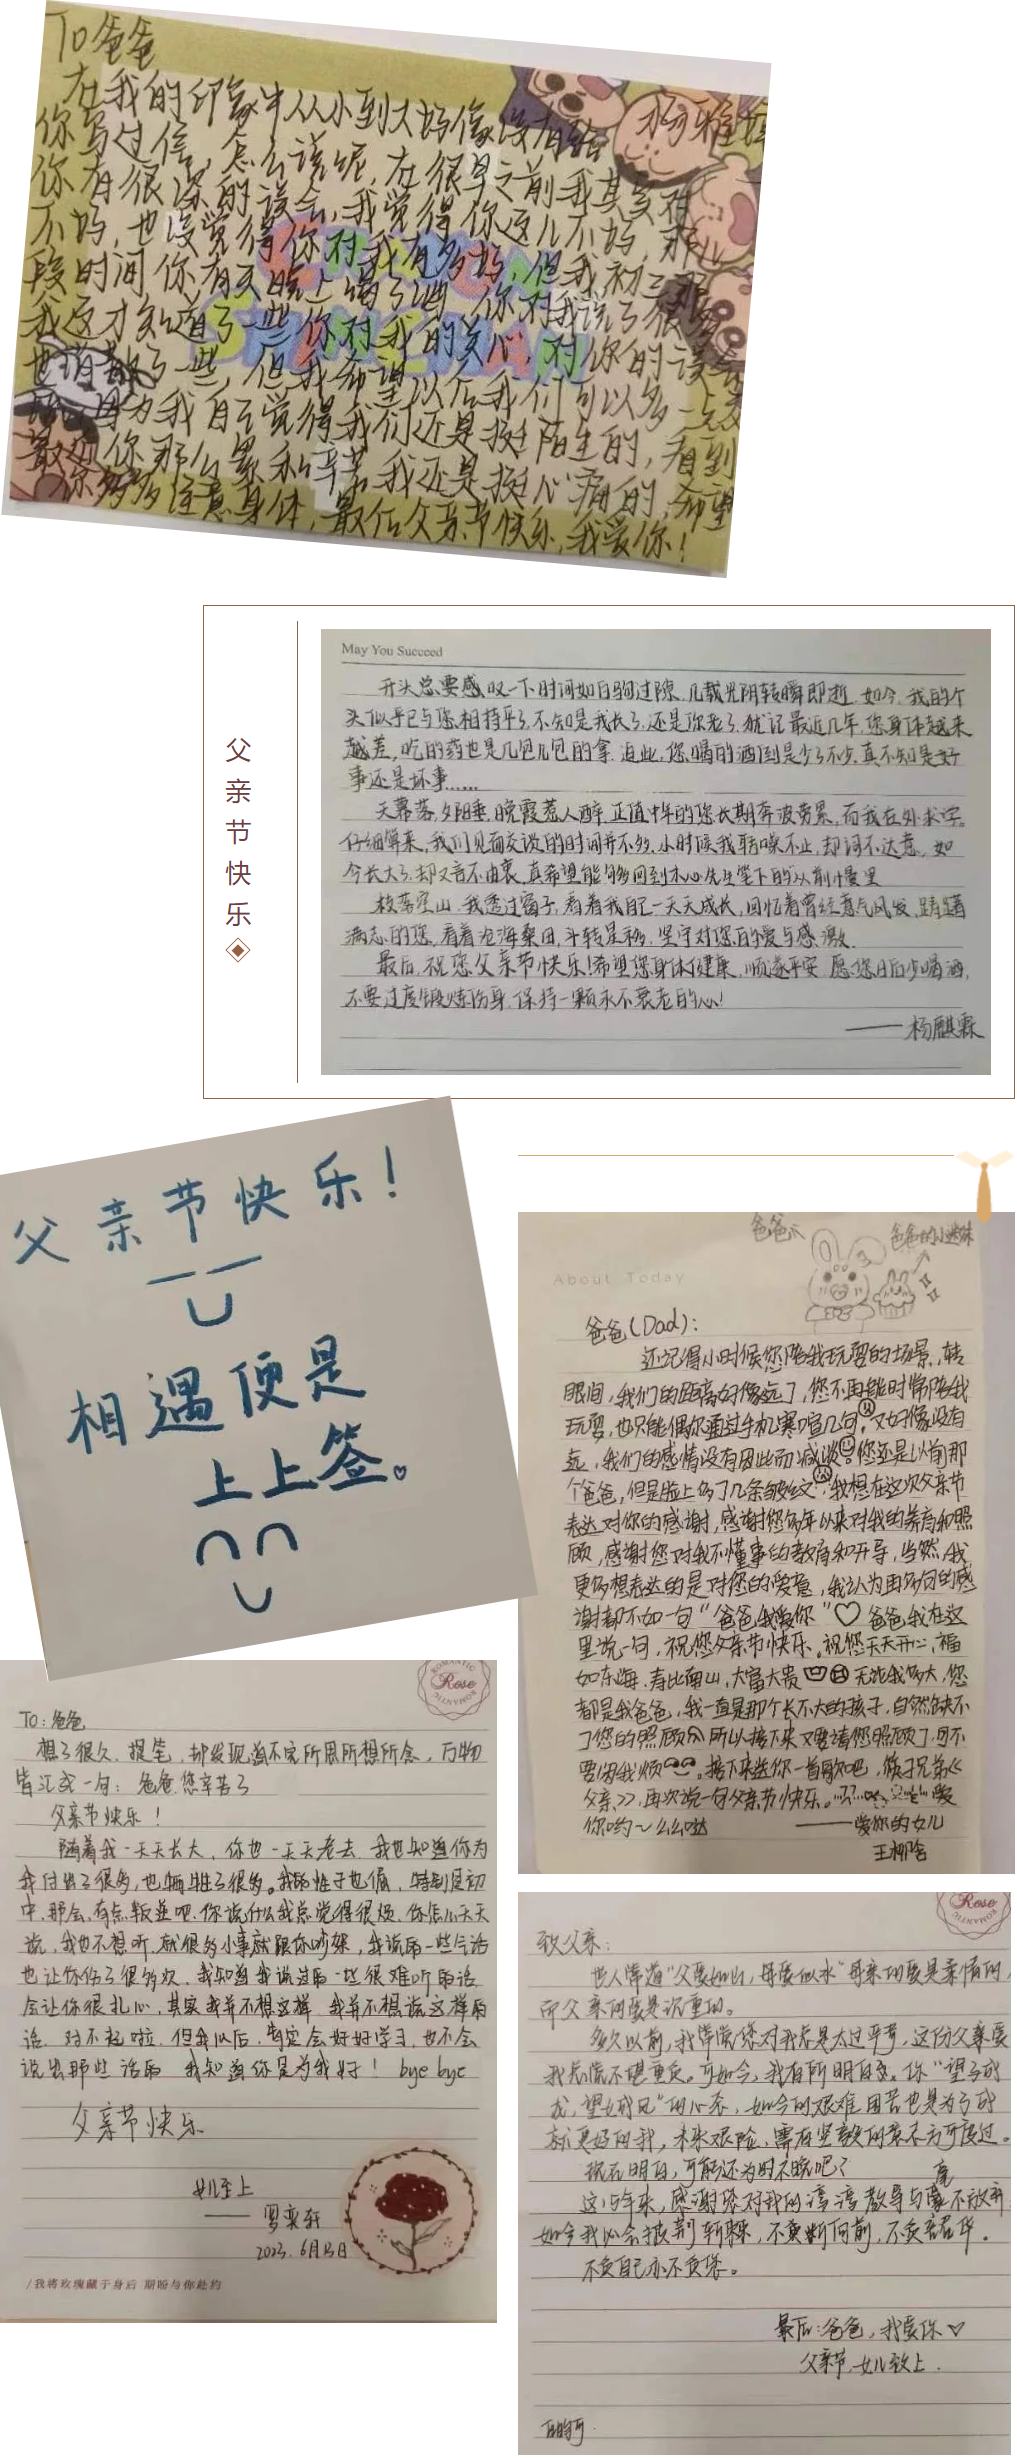 To爸爸
在我的印象中从小到大好像没有给
你写过信，怎么说呢，在很早之前我其实对
你有很深的误会，我觉得你这儿不好，那儿
不好，也没觉得你对我有多好，但我初三那
段时间你有天晚上喝了酒，你对我说了很多
我这才知道了一些你对我的关心，对你的误会
也消散了一些，但我希望以后我们可以多一点
因为我自己觉得我们还是挺陌生的，看到
你那么累和辛苦，我还是挺心痛的，希望
你多多注意身体，最后父亲节快乐，我爱你！
父亲节快乐
May You Succeed
开头总要感叹一下时间如白驹过隙，几载光阴转瞬即逝，如今，我的个
头似乎已与您相持平了，不知是我长了，还是你老了，犹记最近几年，您身体越来
越差，吃的药也是几包几包的拿，自此，您喝的酒倒是少了不少，真不知是好
事还是坏事……
天幕落，夕阳垂，晚霞惹人醉，正值中年的您长期奔波劳累，而我在外求学。
仔细算来，我们见面交谈的时间并不多，小时候我聒噪不止，却词不达意，如
今长大了，却又言不由衷，真希望能够回到木心先生笔下的从前慢里
枝落空山，我透过窗子，看着我自己一天天成长，回忆着曾经意气风发，踌躇
满志的您，看着沧海桑田，斗转星移，坚守对您的爱与感激。
最后，祝您父亲节快乐！希望您身体健康，顺遂平安，愿您日后少喝酒，
不要过度锻炼伤身，保持一颗永不衰老的心！
——杨麒霖
父亲节快乐！
相遇便是
上上签。
爸爸
爸爸的小迷妹
About Today
爸爸(Dad)：
还记得小时候您陪我玩耍的场景，转
眼间，我们的距离好像远了，您不再能时常陪我
玩耍，也只能偶尔通过手机寒喧几句，又好像没有
远，我们的感情没有因此而减淡。您还是以前那
个爸爸，但是脸上多了几条皱纹，我想在这次父亲节
表达对你的感谢，感谢您多年以来对我的养育和照
顾，感谢您对我不懂事的教育和开导，当然，我
更多想表达的是对您的爱意，我认为再多句的感
谢都不如一句“爸爸我爱你”♡ 爸爸，我在这
里说一句，祝您父亲节快乐。祝您天天开心，福
如东海，寿比南山，大富大贵 无论我多大，您
都是我爸爸，我一直是那个长不大的孩子，自然缺不
了您的照顾 所以接下来又要请您照顾了，可不
要因我烦。接下来送你一首歌吧，筷子兄弟《
父亲》，再次说一句父亲节快乐。爱
你哟~么么哒 ——爱你的女儿
Rose
ROMANTIC
TO：爸爸
想了很久，提笔，却发现道不完所思所想所念，万物
皆汇成一句：爸爸，您辛苦了
父亲节快乐！
随着我一天天长大，你也一天天老去，我也知道你为
我付出了很多，也牺牲了很多。我脾性子也倔，特别是初
中，那会，有点叛逆吧，你说什么我总觉得很烦，你怎么天天
说，我也不想听，就很多小事就跟你吵架，我说的一些气话
也让你伤了很多次，我知道我说过的一些很难听的话
会让你很扎心，其实我并不想这样，我并不想说这样的
话，对不起啦，但我以后，肯定会好好学习，也不会
说出那些话的，我知道你是为我好！ bye bye
父亲节快乐
女儿至上
——罗奕轩
2023.6月13日
/我将玫瑰藏于身后 期盼与你赴约
Rose
ROMANTIC
致父亲：
世人常道“父爱如山，母爱似水”母亲的爱是亲情的，
而父亲的爱是沉重的。
多久以前，我常觉您对我总是太过严苛，这份父亲爱
我总觉不堪重负。可如今，我有所明白爱。你“望子成
龙，望女成凤”的心态，如今的艰难困苦也是为了成
就更好的我，未来艰险，需有坚毅的意志方可度过。
现在明白，可能还为时不晚吧？
这15年来，感谢您对我的谆谆教导与毫不放弃
如今我必会披荆斩棘，不负断向前，不负韶华。
不负自己亦不负您。
最后：爸爸，我爱你♡
父亲节，女儿致上．